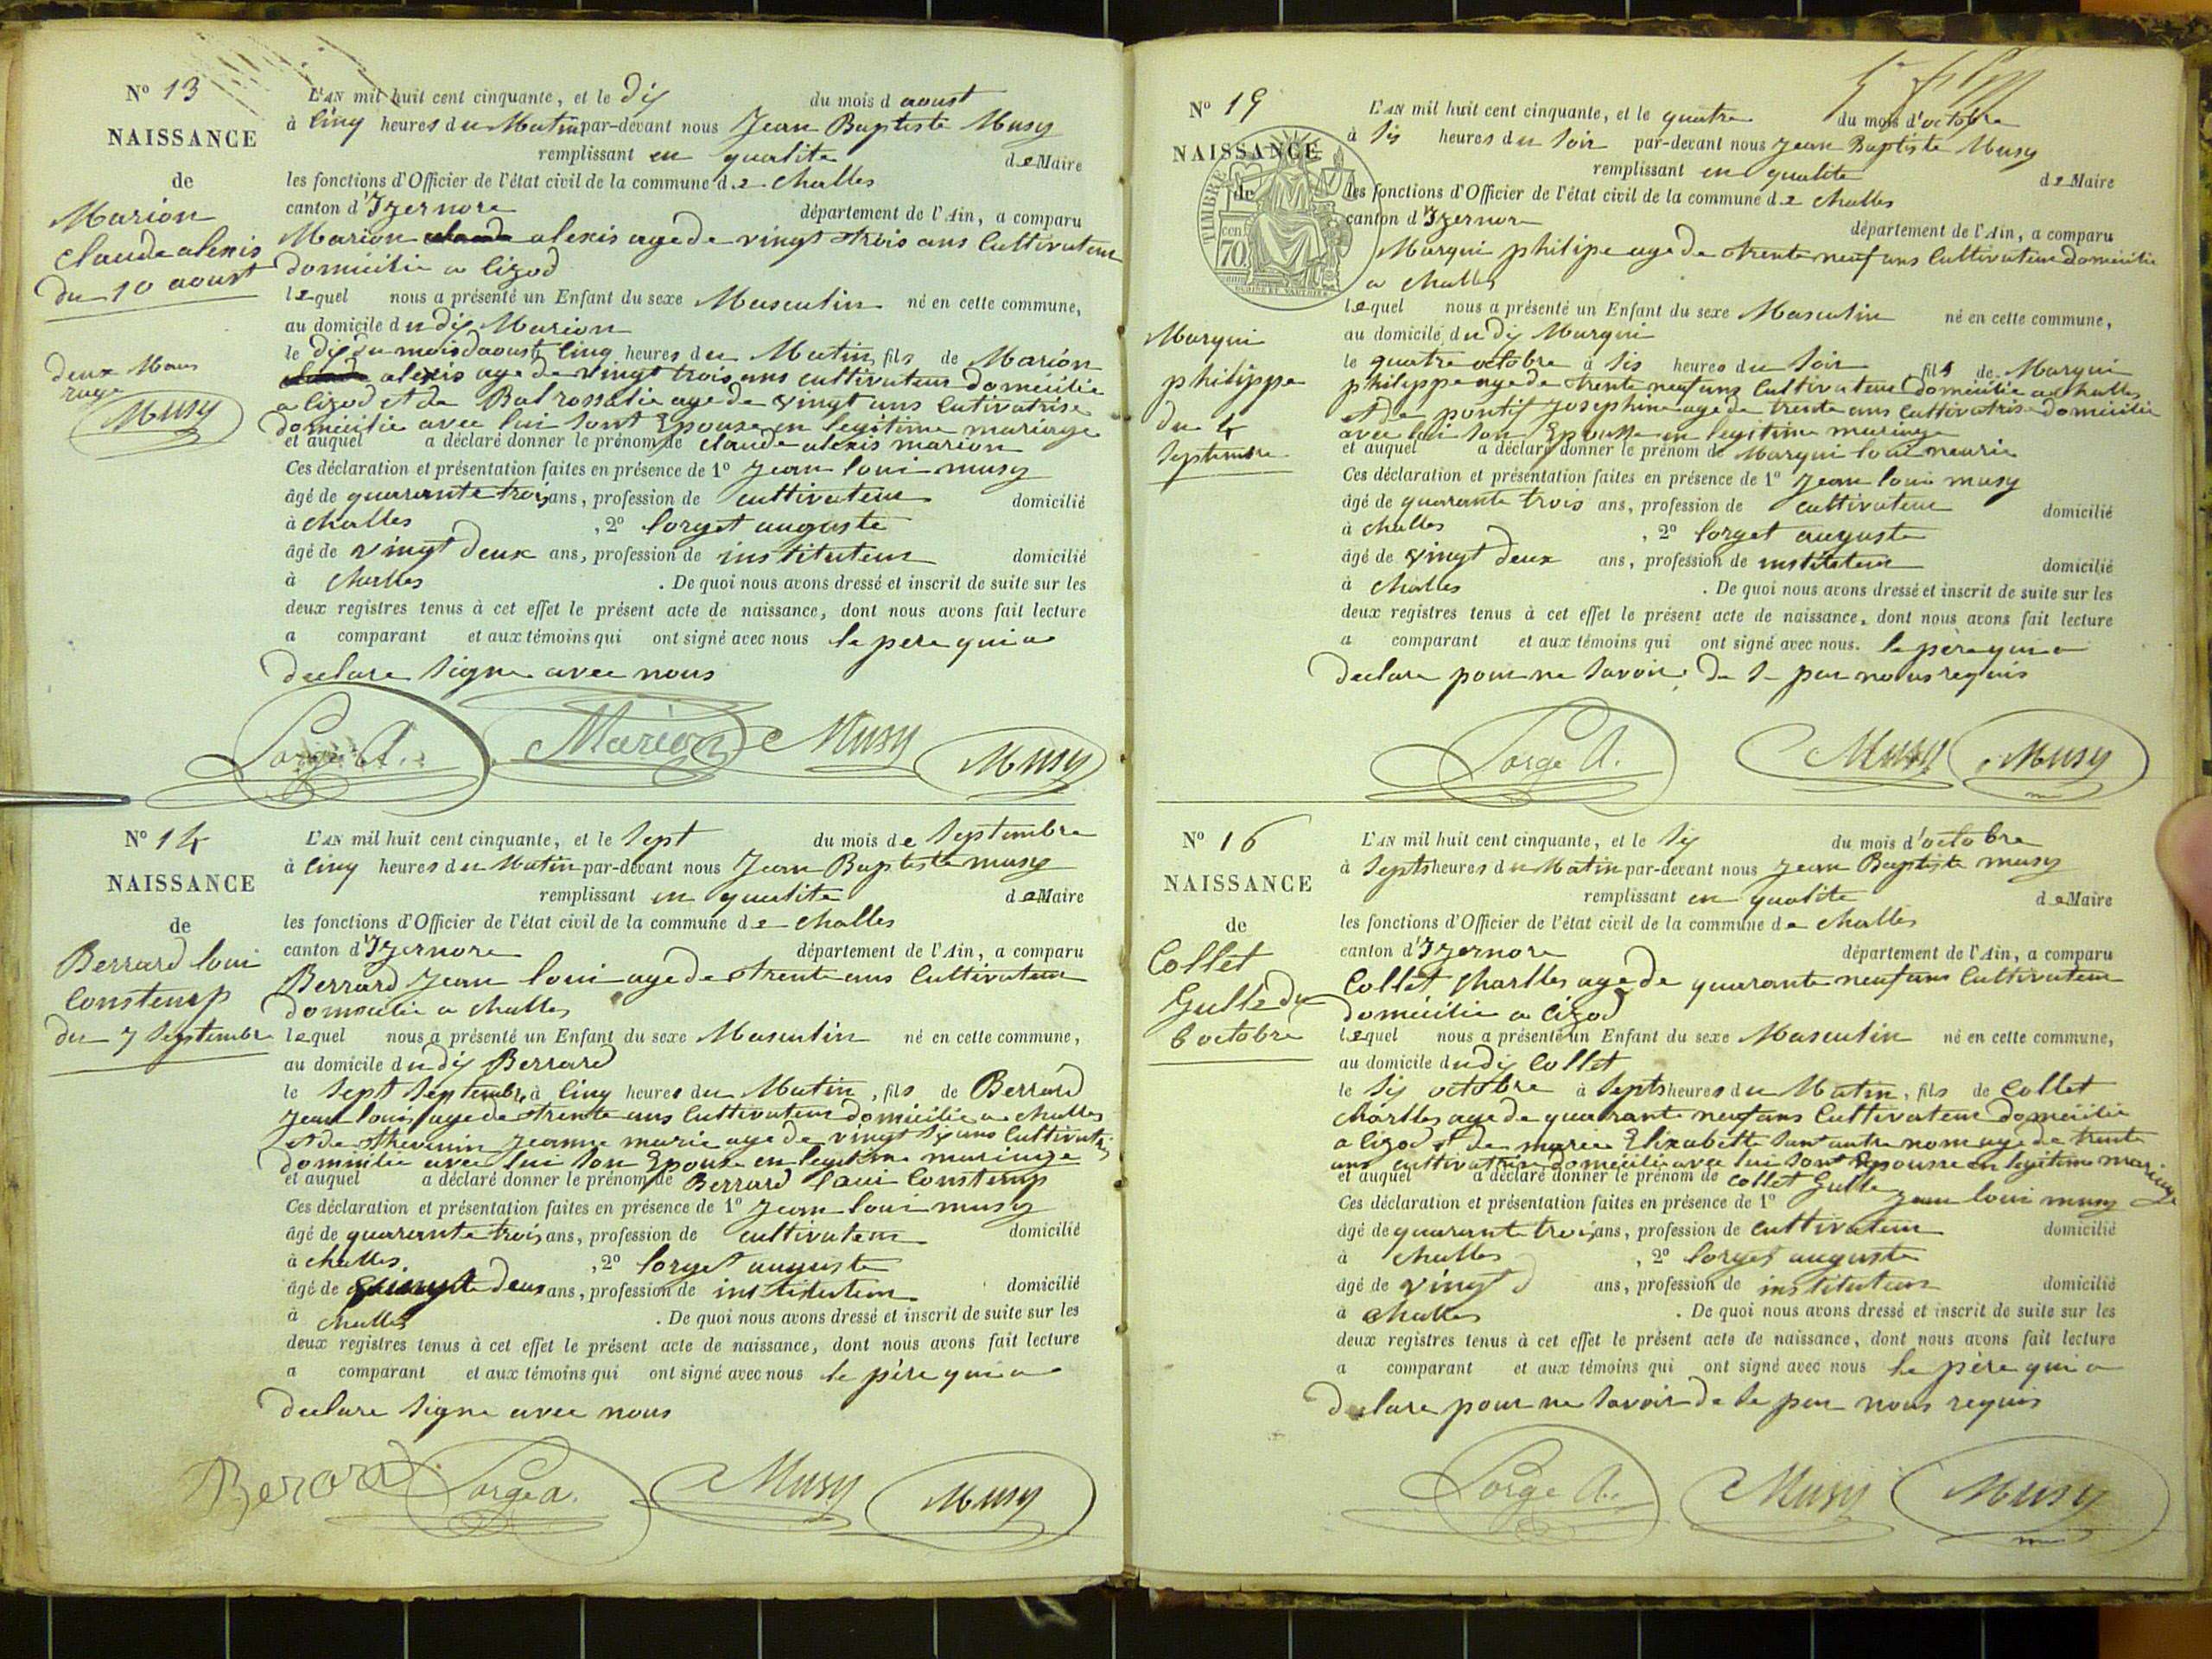 N° 13
NAISSANCE
de
Marion
claude alexis
du 10 aoust
deux Mous
raye
Musy
L'AN mil huit cent cinquante, et le dix du mois d aoust
à Cinq heures du Matin par-devant nous Jean Baptiste Musy
remplissant en qualite de Maire
les fonctions d'Officier de l'état civil de la commune de challes
canton d'Izernore département de l'Ain, a comparu
Marion alexis age de vingt trois ans Cultivateur
domicilie a Cizod
lequel nous a présenté un Enfant du sexe Masculin né en cette commune,
au domicile du dix Marion
le dix du mois daoust Cinq heures du Matin, fils de Marion
alexis age de vingt trois ans cultivateur domicilie
a Cizod et de Bal rossalie age de vingt ans Cutivatrise
domicilie avec lui sont Epouse en legitime mariage
et auquel a déclaré donner le prénom de claude alexis marion
Ces déclaration et présentation faites en présence de 1° Jean loui musy
âgé de quarante trois ans, profession de cultivateur domicilié
à challes , 2° lorget auguste
âgé de vingt deux ans, profession de instituteur domicilié
à challes . De quoi nous avons dressé et inscrit de suite sur les
deux registres tenus à cet effet le présent acte de naissance, dont nous avons fait lecture
a comparant et aux témoins qui ont signé avec nous le pere qui a
declare signe avec nous
Lorge A. Marion Musy Musy
N° 14
NAISSANCE
de
Berrard loui
Constemp
du 7 Septembre
L'AN mil huit cent cinquante, et le Sept du mois de Septembre
à Cinq heures du Matin par-devant nous Jean Baptiste musy
remplissant en qualite de Maire
les fonctions d'Officier de l'état civil de la commune de challes
canton d'Izernore département de l'Ain, a comparu
Berrard Jean loui age de trente ans Cultivateur
domicilie a challes
lequel nous a présenté un Enfant du sexe Masculin né en cette commune,
au domicile du dix Berrard
le Sept Septembre à Cinq heures du Matin, fils de Berrard
Jean loui age de trente ans Cultivateur domicilie a challes
et de thevenin Jeanne marie age de vingt six ans Cultivatris
domicilie avec lui son Epouse en legitime mariage
et auquel a déclaré donner le prénom de Berrard loui Constemp
Ces déclaration et présentation faites en présence de 1° Jean loui musy
âgé de quarante trois ans, profession de cultivateur domicilié
à challes , 2° lorget auguste
âgé de deux ans, profession de instituteur domicilié
à challes . De quoi nous avons dressé et inscrit de suite sur les
deux registres tenus à cet effet le présent acte de naissance, dont nous avons fait lecture
a comparant et aux témoins qui ont signé avec nous le père qui a
declare signe avec nous
Berard Lorge a. Musy Musy
N° 15
NAISSANCE
de
TIMBRE
70 cen.
Marqui
philippe
du 4
Septembre
L'AN mil huit cent cinquante, et le quatre du mois d'octobre
à Sis heures du Soir par-devant nous Jean Baptiste Musy
remplissant en qualite de Maire
les fonctions d'Officier de l'état civil de la commune de challes
canton d'Izernore département de l'Ain, a comparu
Marqui philipe age de trente neuf ans Cultivateur domicilie
a challes
lequel nous a présenté un Enfant du sexe Masculin né en cette commune,
au domicile du dix Marqui
le quatre octobre à Sis heures du Soir fils de Marqui
philippe age de trente neuf ans Cultivateur domicilie a challes
et de pontif Josephine age de trente ans Cultivatrise domicilie
avec lui son Epousse en legitime mariage
et auquel a déclaré donner le prénom de Marqui loui mari
Ces déclaration et présentation faites en présence de 1° Jean loui musy
âgé de quarante trois ans, profession de cultivateur domicilié
à challes , 2° lorget auguste
âgé de vingt deux ans, profession de instituteur domicilié
à challes . De quoi nous avons dressé et inscrit de suite sur les
deux registres tenus à cet effet le présent acte de naissance, dont nous avons fait lecture
a comparant et aux témoins qui ont signé avec nous. le père qui a
declare pour ne savoir de s par nous requis
Lorge A. Musy Musy
N° 16
NAISSANCE
de
Collet
Gulle du
6 octobre
L'AN mil huit cent cinquante, et le Six du mois d'octobre
à Septs heures du Matin par-devant nous Jean Baptiste musy
remplissant en qualite de Maire
les fonctions d'Officier de l'état civil de la commune de challes
canton d'Izernore département de l'Ain, a comparu
Collet Charlles age de quarante neuf ans Cultivateur
domicilie a Cizod
lequel nous a présenté un Enfant du sexe Masculin né en cette commune,
au domicile du dix Collet
le Six octobre à Septs heures du Matin, fils de Collet
Charlles age de quarante neuf ans Cultivateur domicilie
a Cizod et de maree Elizabette sant autre nom age de trente
ans cultivatrise domicilie avec lui sont Epousse en legitime mariage
et auquel a déclaré donner le prénom de collet Gulle
Ces déclaration et présentation faites en présence de 1° Jean loui musy
âgé de quarante trois ans, profession de cultivateur domicilié
à challes , 2° lorget auguste
âgé de vingt d ans, profession de instituteur domicilié
à challes . De quoi nous avons dressé et inscrit de suite sur les
deux registres tenus à cet effet le présent acte de naissance, dont nous avons fait lecture
a comparant et aux témoins qui ont signé avec nous le père qui a
declare pour ne savoir de le par nous requis
Lorge A. Musy Musy